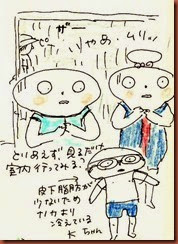 ザー
いやぁ、ムリッ
とりあえず 見るだけ
室内 行ってみる。
皮下脂肪が
少ないため
冷えている
Kちゃん